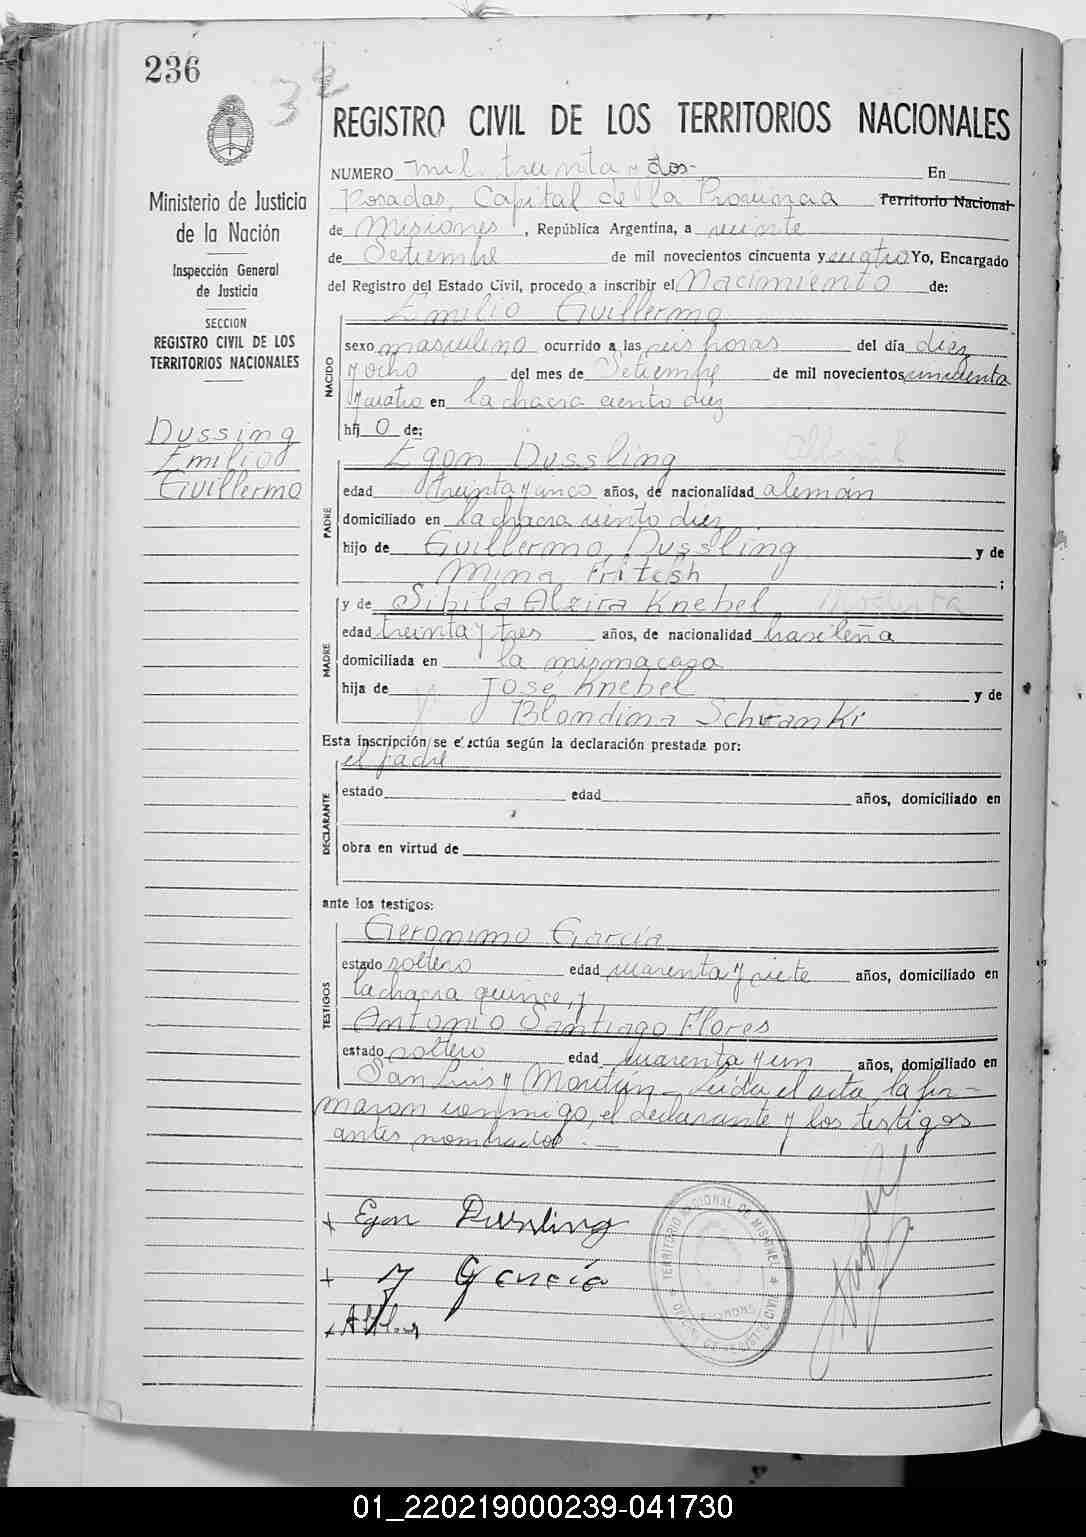 236
32
REGISTRO CIVIL DE LOS TERRITORIOS NACIONALES
Ministerio de Justicia
de la Nación
Inspección General
de Justicia
SECCION
REGISTRO CIVIL DE LOS
TERRITORIOS NACIONALES
Dussing
Emilio
Guillermo
NUMERO mil treinta y dos- En
Posadas, Capital de la Provincia Territorio Nacional
de Misiones, República Argentina, a veinte
de Setiembre de mil novecientos cincuenta y cuatro Yo, Encargado
del Registro del Estado Civil, procedo a inscribir el Nacimiento de:
NACIDO
Emilio Guillermo
sexo masculino ocurrido a las seis horas del día diez
y ocho del mes de Setiembre de mil novecientos cincuenta
y cuatro en la chacra ciento diez
hij o de:
PADRE
Egon Dussling
edad treinta y cinco años, de nacionalidad alemán
domiciliado en la chacra ciento diez
hijo de Guillermo Dussling y de
Mina Fritesh ;
MADRE
y de Sibila Alzira Knebel
edad treinta y tres años, de nacionalidad brasileña
domiciliada en la misma casa
hija de José Knebel y de
Blondina Schvanki
Esta inscripción se efectúa según la declaración prestada por:
DECLARANTE
el padre
estado edad años, domiciliado en
obra en virtud de
ante los testigos:
TESTIGOS
Gerónimo García
estado soltero edad cuarenta y siete años, domiciliado en
la chacra quince, y
Antonio Santiago Flores
estado soltero edad cuarenta y un años, domiciliado en
San Luis y Moritán - Leída el acta, la fir-
maron conmigo, el declarante y los testigos
antes nombrados.
+ Egon Dussling
+ García
TERRITORIO NACIONAL DE MISIONES
01_220219000239-041730